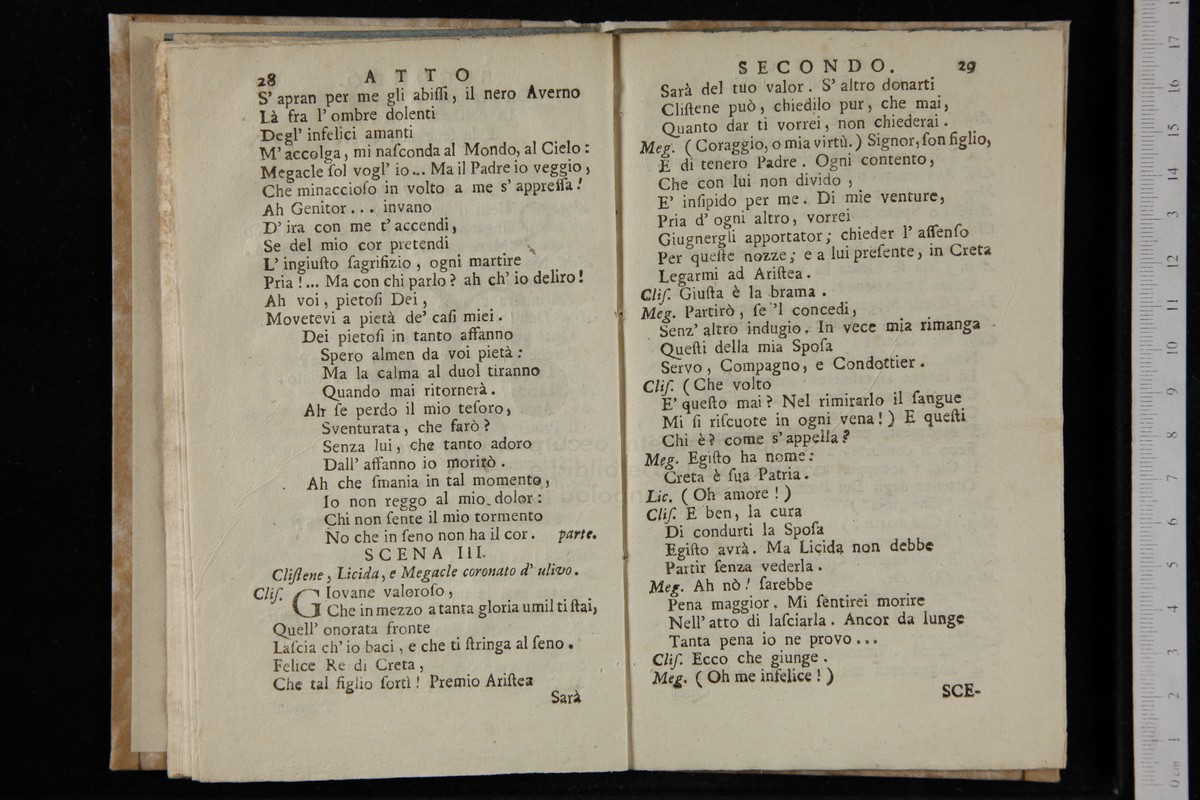 28 ATTO
S' apran per me gli abiſſi, il nero Averno
Là fra l' ombre dolenti
Degl' infelici amanti
M' accolga, mi naſconda al Mondo, al Cielo:
Megacle ſol vogl' io... Ma il Padre io veggio,
Che minaccioſo in volto a me s' appreſſa!
Ah Genitor... invano
D' ira con me t' accendi,
Se del mio cor pretendi
L' ingiuſto ſagrifizio, ogni martire
Pria!... Ma con chi parlo? ah ch' io deliro!
Ah voi, pietoſi Dei,
Movetevi a pietà de' caſi miei.
Dei pietoſi in tanto affanno
Spero almen da voi pietà:
Ma la calma al duol tiranno
Quando mai ritornerà.
Ah ſe perdo il mio teſoro,
Sventurata, che farò?
Senza lui, che tanto adoro
Dall' affanno io morirò.
Ah che ſmania in tal momento,
Io non reggo al mio dolor:
Chi non ſente il mio tormento
No che in ſeno non ha il cor. parte.
SCENA III.
Cliſtene, Licida, e Megacle coronato d' ulivo.
Cliſ. GIovane valoroſo,
Che in mezzo a tanta gloria umil ti ſtai,
Quell' onorata fronte
Laſcia ch' io baci, e che ti ſtringa al ſeno.
Felice Re di Creta,
Che tal figlio ſortì! Premio Ariſtea
Sarà
SECONDO. 29
Sarà del tuo valor. S' altro donarti
Cliſtene può, chiedilo pur, che mai,
Quanto dar ti vorrei, non chiederai.
Meg. (Coraggio, o mia virtù.) Signor, ſon figlio,
E di tenero Padre. Ogni contento,
Che con lui non divido,
E' inſipido per me. Di mie venture,
Pria d' ogni altro, vorrei
Giugnergli apportator; chieder l' aſſenſo
Per queſte nozze; e a lui preſente, in Creta
Legarmi ad Ariſtea.
Cliſ. Giuſta è la brama.
Meg. Partirò, ſe 'l concedi,
Senz' altro indugio. In vece mia rimanga
Queſti della mia Spoſa
Servo, Compagno, e Condottier.
Cliſ. (Che volto
E' queſto mai? Nel rimirarlo il ſangue
Mi ſi riſcuote in ogni vena!) E queſti
Chi è? come s' appella?
Meg. Egiſto ha nome:
Creta è ſua Patria.
Lic. (Oh amore!)
Cliſ. E ben, la cura
Di condurti la Spoſa
Egiſto avrà. Ma Licida non debbe
Partir ſenza vederla.
Meg. Ah nò! ſarebbe
Pena maggior. Mi ſentirei morire
Nell' atto di laſciarla. Ancor da lunge
Tanta pena io ne provo...
Cliſ. Ecco che giunge.
Meg. (Oh me infelice!)
SCE-